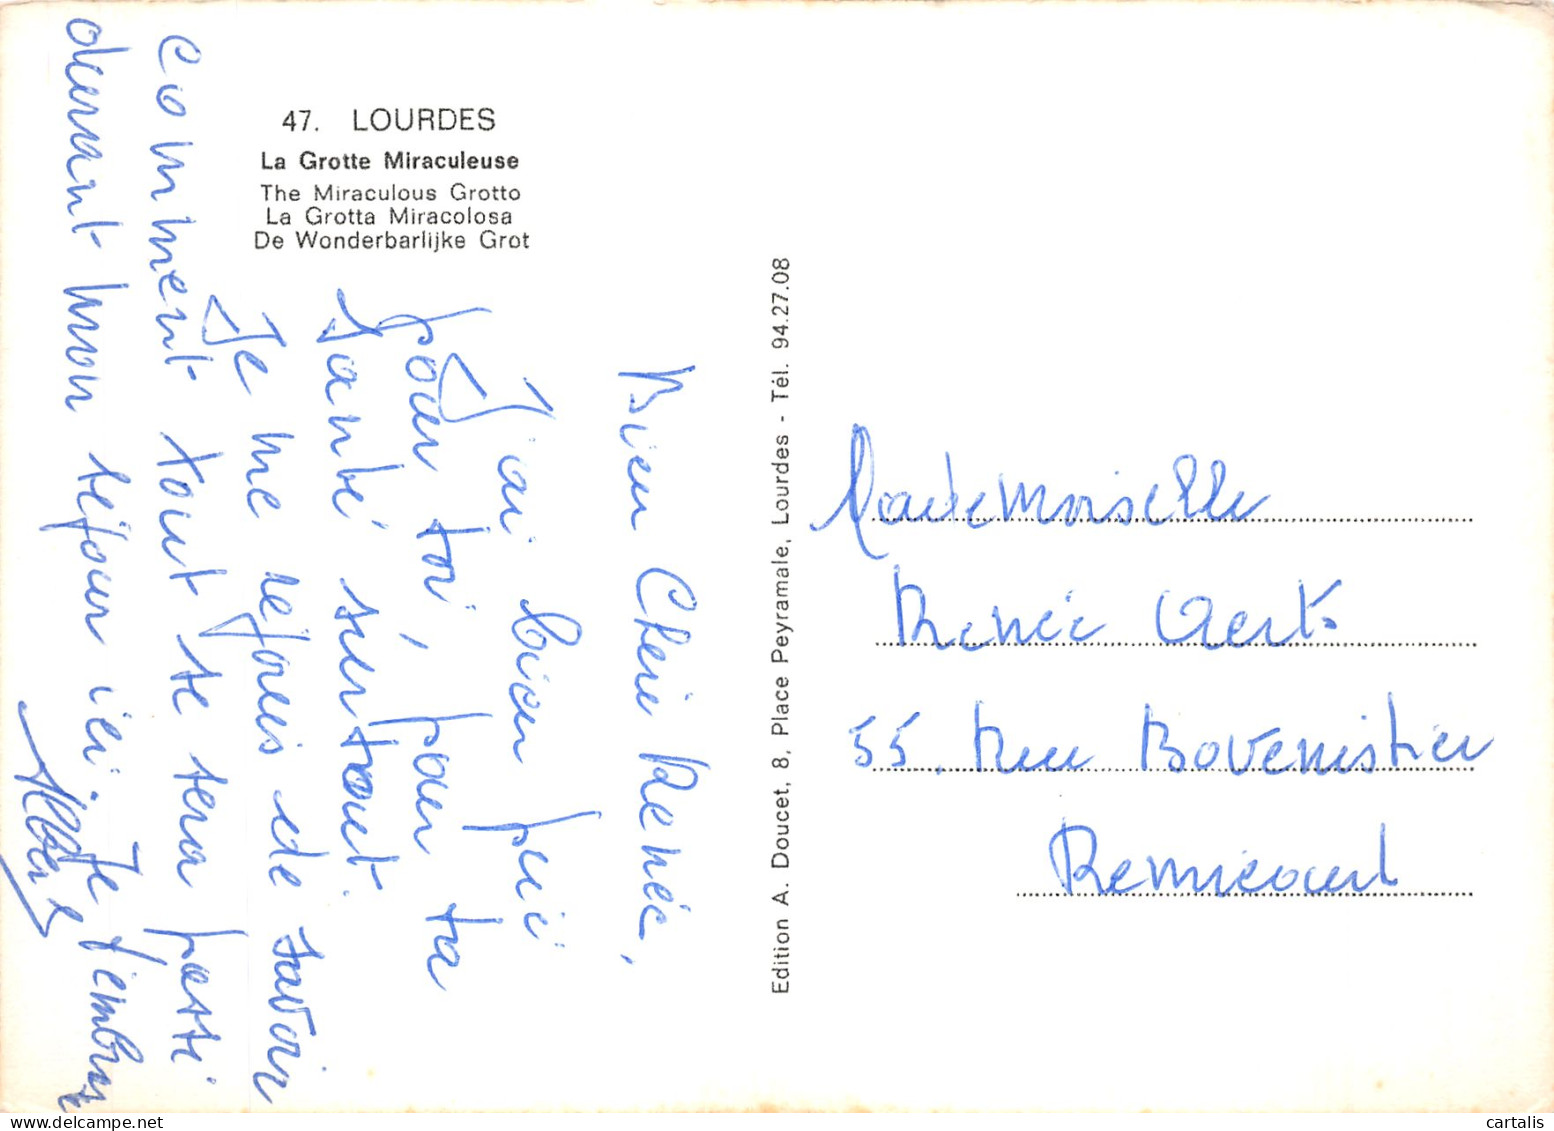 47. LOURDES
La Grotte Miraculeuse
The Miraculous Grotto
La Grotta Miracolosa
De Wonderbarlijke Grot
Bien Chère Renée,
J'ai bien prié
pour toi, pour ta
santé surtout.
Je me réjouis de savoir
comment tout se sera passé
durant mon séjour ici. Je t'embrasse
Albert
Edition A. Doucet, 8, Place Peyramale, Lourdes - Tél. 94.27.08
Mademoiselle
Renée Aerts
55, Rue Bovenistier
Remicourt
cartalis